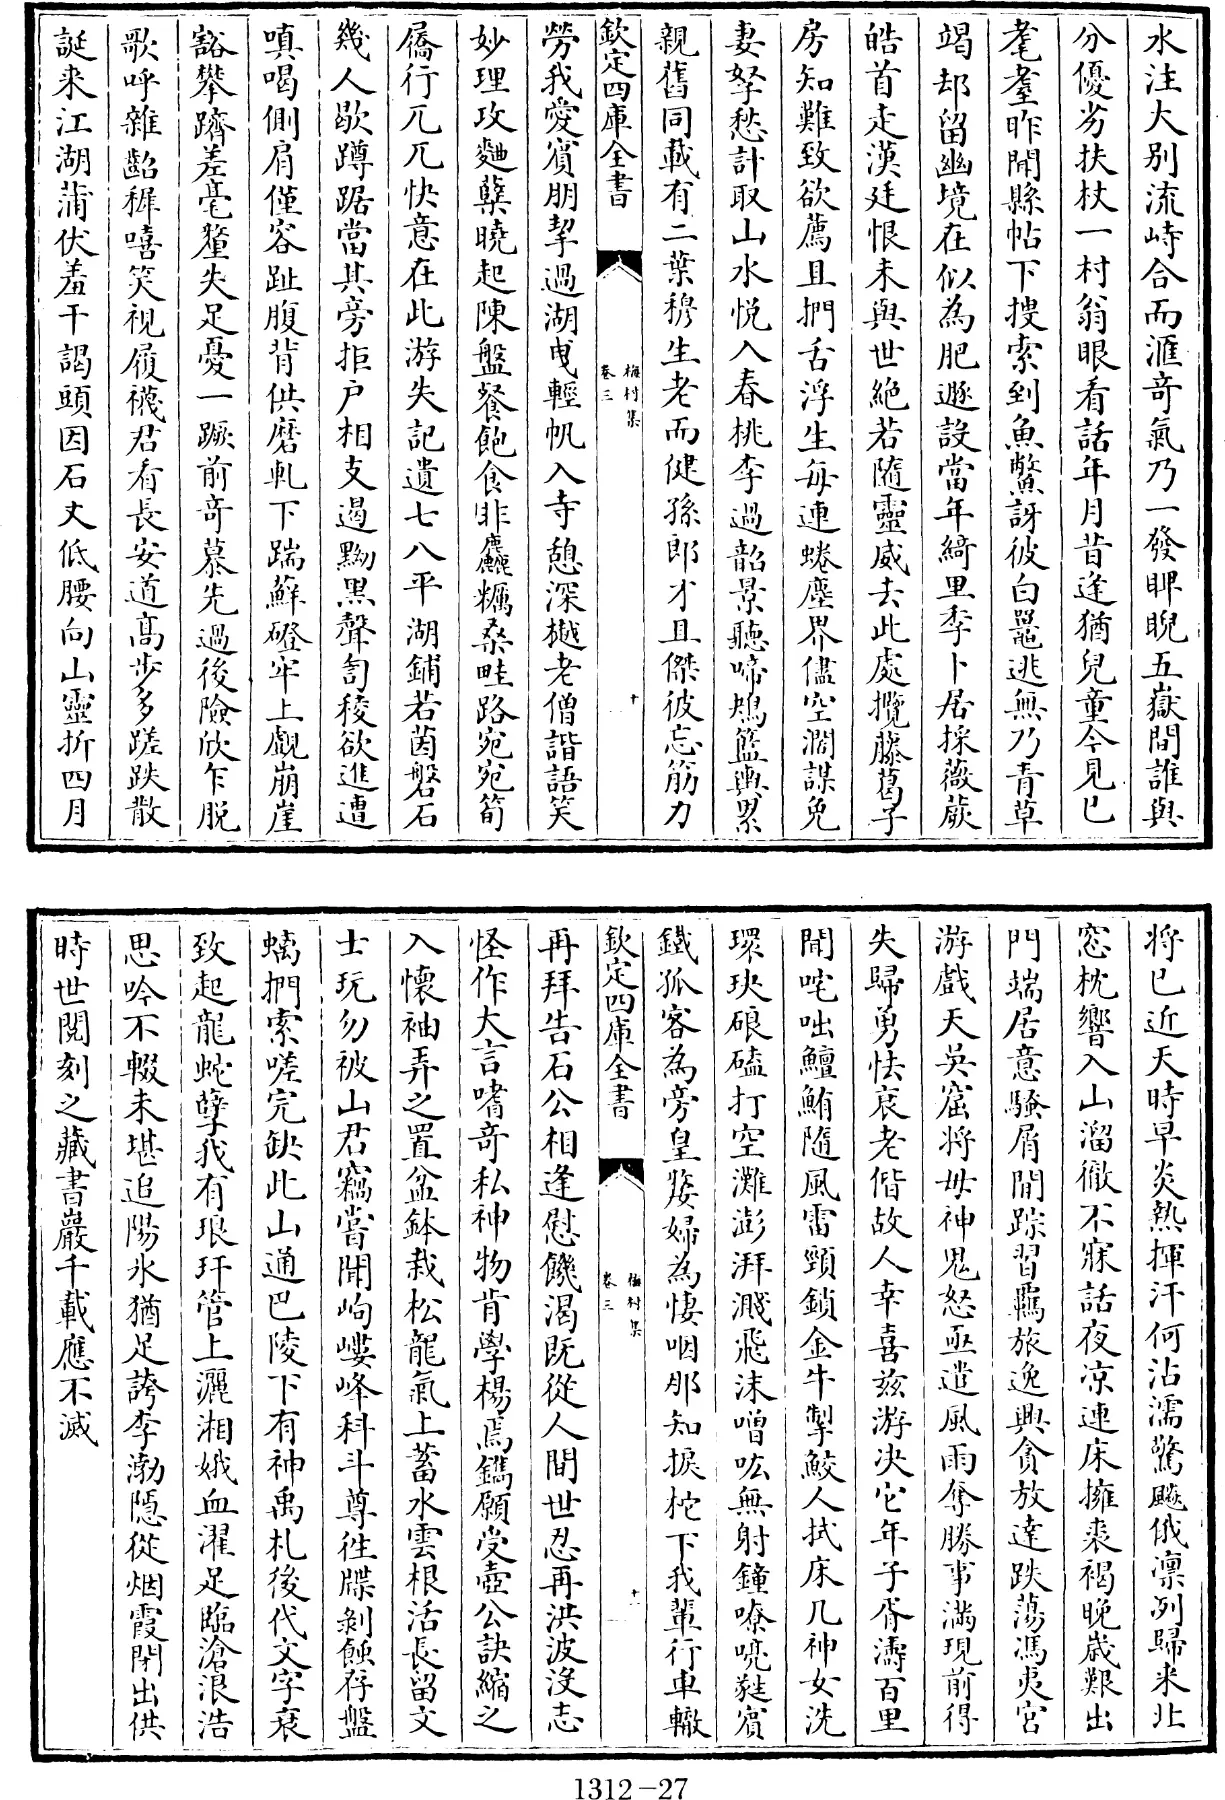 水注大别流峙合而滙奇氣乃一發睥睨五嶽間誰與
分優劣扶杖一村翁眼看話年月昔逢猶兒童今見已
耄耋昨聞縣帖下搜索到魚鱉訝彼白黿逃無乃青草
竭却留幽境在似為肥遯設當年綺里季卜居採薇蕨
皓首走漢廷恨未與世絶若隨靈威去此處攬藤葛子
房知難致欲薦且捫舌浮生每連蜷塵界儘空濶謀免
妻孥愁計取山水悅入春桃李過韶景聽啼鴂籃輿累
親舊同載有二葉穆生老而健孫郎才且傑彼忘筋力
欽定四庫全書
梅村集
卷三
十
勞我愛賓朋挈過湖曳輕帆入寺憩深樾老僧諧語笑
妙理攻麯蘖曉起陳盤餐飽食非麤糲桑畦路宛宛筍
屩行兀兀快意在此游失記遺七八平湖鋪若茵磐石
幾人歇蹲踞當其旁拒户相支遏黝黑聲訇稜欲進遭
嗔喝側肩僅容趾腹背供磨軋下踹蘚磴牢上覷崩崖
豁攀躋差毫釐失足憂一蹶前奇慕先過後險欣乍脱
歌呼雜齠穉嘻笑視履襪君看長安道高步多蹉跌散
誕來江湖蒲伏羞干謁頭因石丈低腰向山靈折四月
將已近天時早炎熱揮汗何沾濡驚飇俄凛冽歸來北
窓枕響入山溜徹不寐話夜凉連床擁裘褐晚歲艱出
門端居意騷屑間踪習羈旅逸興貪放達跌蕩馮夷宫
游戲天吳窟將毋神鬼怒亟遣風雨奪勝事滿現前得
失歸勇怯衰老偕故人幸喜兹游决它年子胥濤百里
聞咤咄鱣鮪隨風雷頸鎖金牛掣鮫人拭床几神女洗
環玦硠磕打空灘澎湃濺飛沫噌吰無射鐘嘹喨蕤賓
鐵孤客為旁皇嫠婦為悽咽那知捩柁下我輩行車轍
欽定四庫全書
梅村集
卷三
十一
再拜告石公相逢慰饑渴既從人間世忍再洪波沒志
怪作大言嗜奇私神物肯學楊焉鐫願受壺公訣縮之
入懷袖弄之置盆鉢栽松龍氣上蓄水雲根活長留文
士玩勿被山君竊嘗聞岣嶁峰科斗尊往牒剝蝕存盤
螭捫索嗟完缺此山通巴陵下有神禹札後代文字衰
致起龍蛇孽我有琅玕管上灑湘娥血濯足臨滄浪浩
思吟不輟未堪追陽冰猶足誇李渤隱從烟霞閉出供
時世閱刻之藏書巖千載應不滅
1312－27